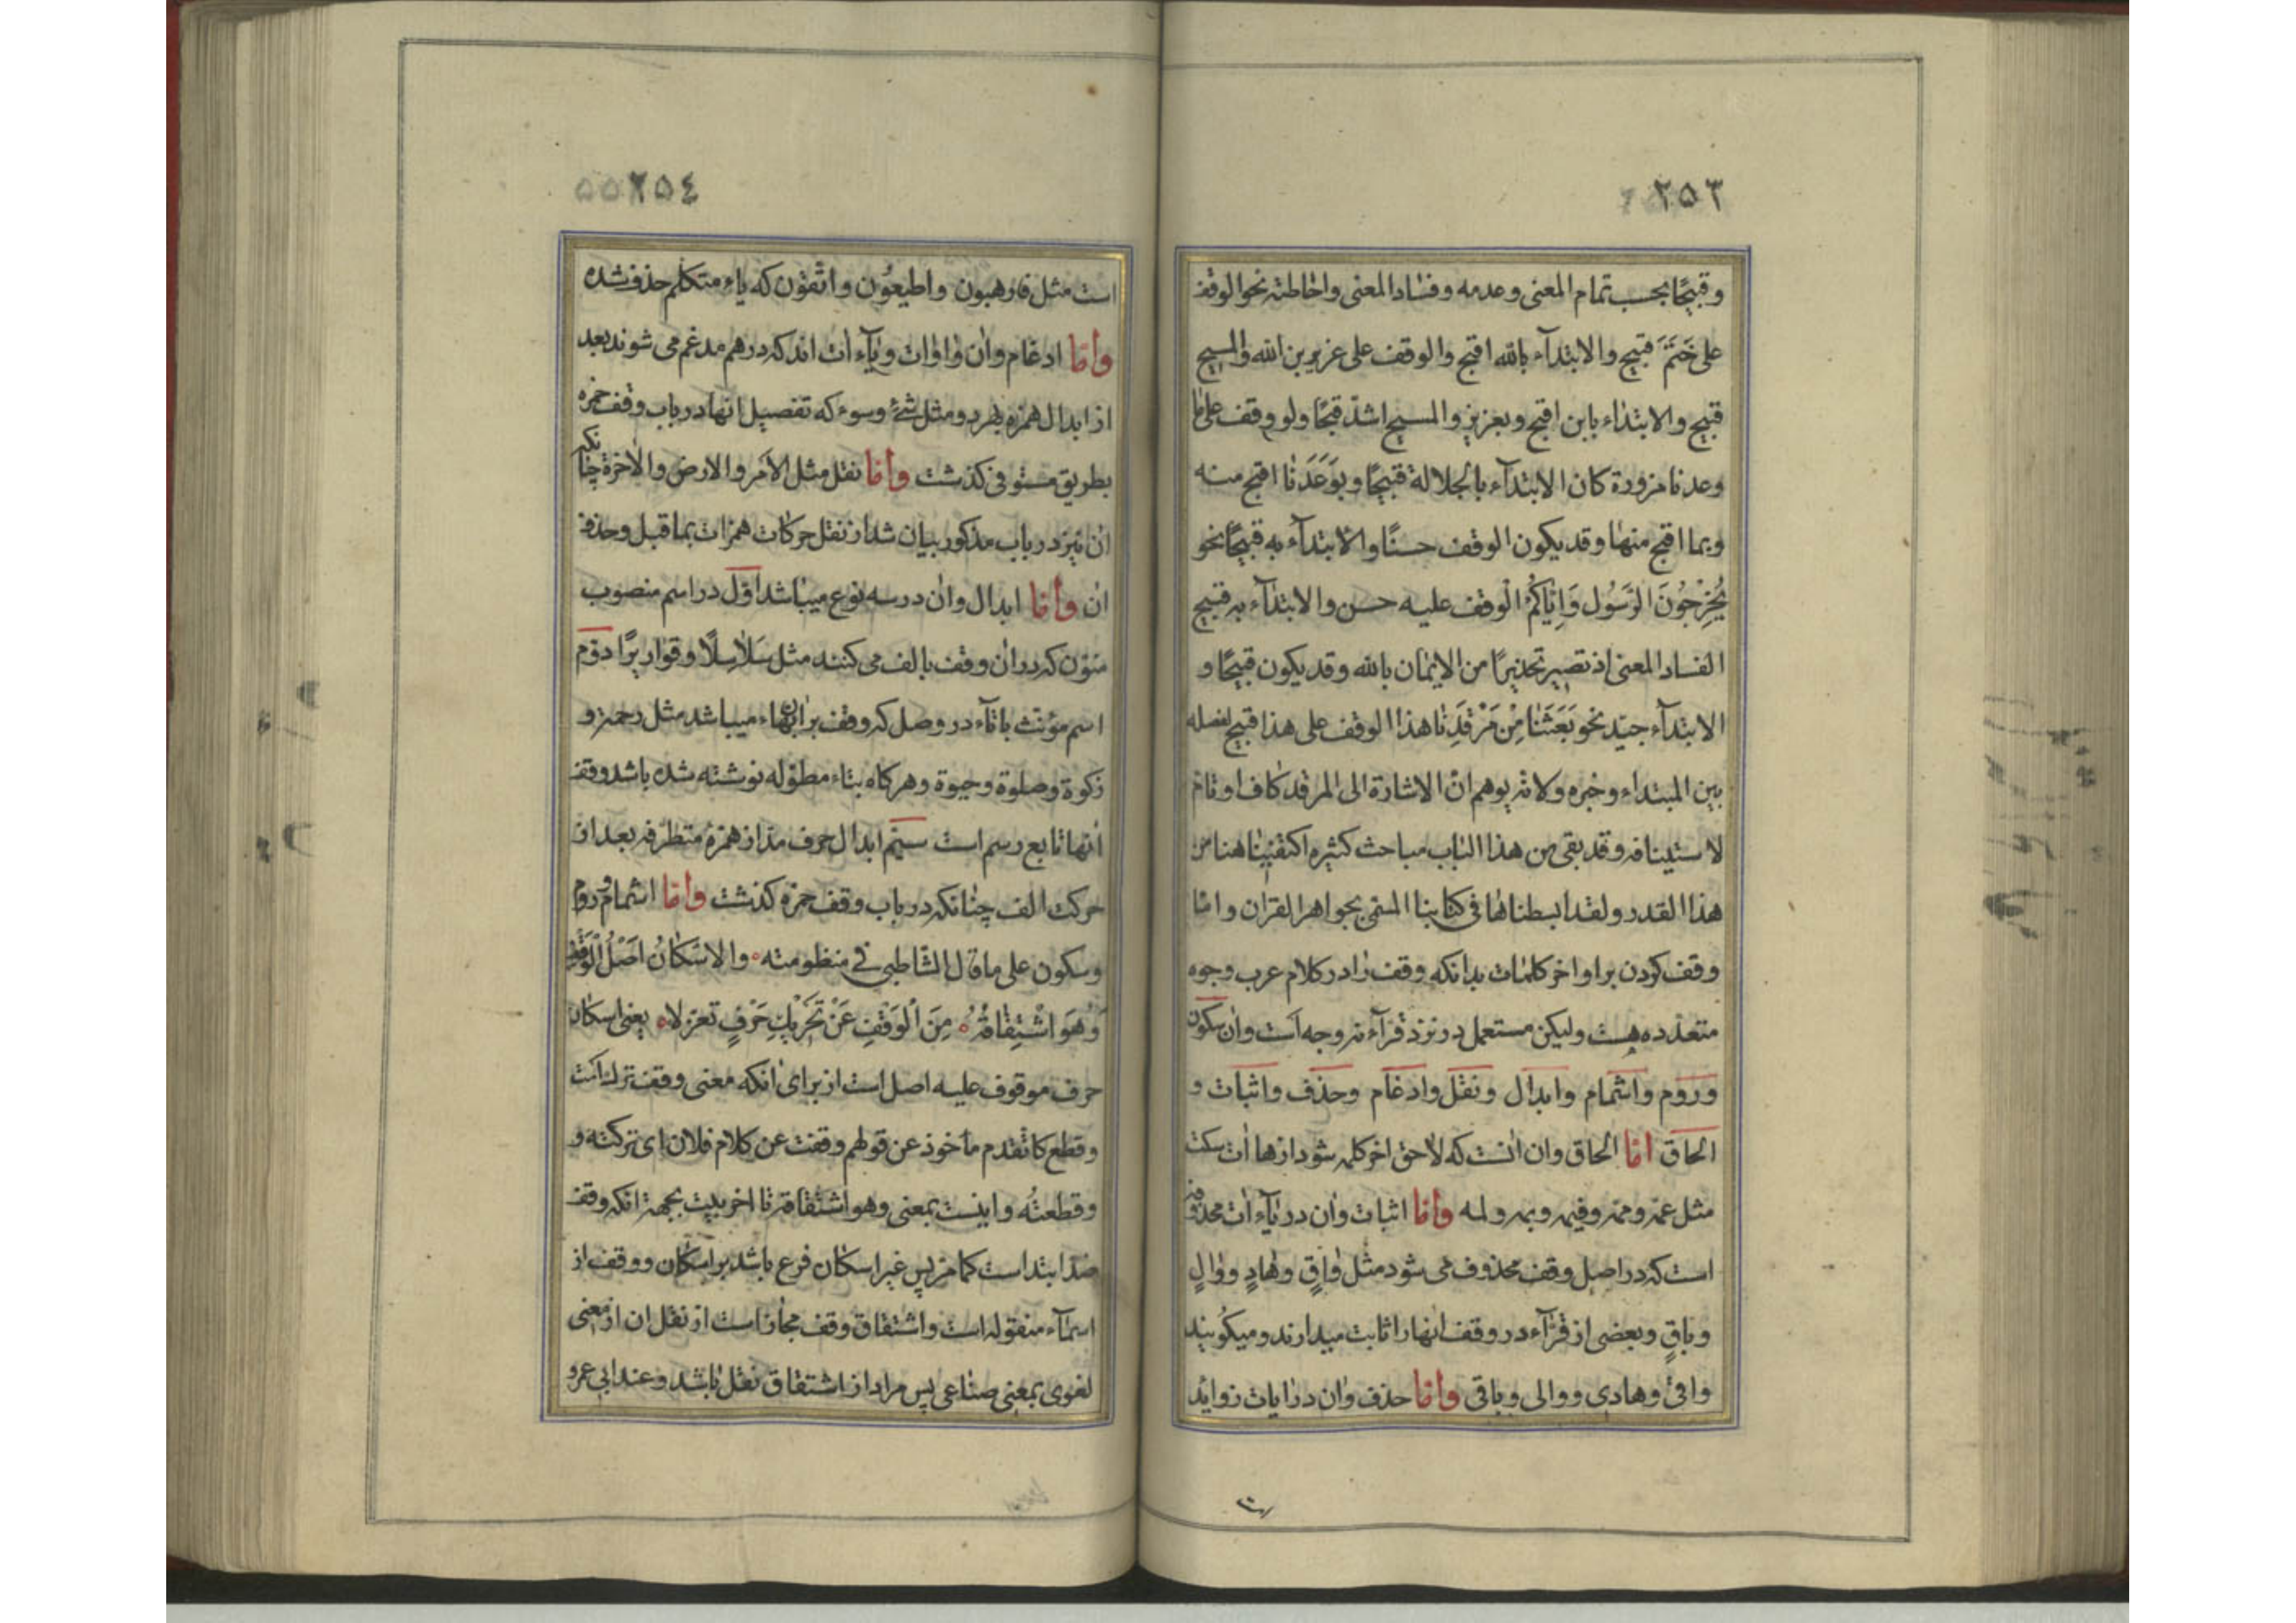 ٢٥٣
وقبيحًا بحسب تمام المعنى وعدمه وفساد المعنى واحاطته نحو الوقف
على خَتَمَ قبيح والابتدآء بالله اقبح والوقف على عزير بن الله والمسيح
قبيح والابتداء بابن اقبح وبعزيز والمسيح اشدّ قبحًا ولو وقف على ما
وعدنا مزورة كان الابتدآء بالجلالة قبيحًا وبوَعَدَنا اقبح منه
وبما اقبح منها وقد يكون الوقف حسنًا والابتدآء به قبيحًا نحو
يُخْرِجُونَ الرَّسُول وَاِيّاكُمْ الوقف عليه حسن والابتدآء به قبيح
الفساد المعنى اذ تصير تحذيرًا من الايمان بالله وقد يكون قبيحًا و
الابتدآء جيّد نحو بَعَثَنا مِنْ مَرْقَدِنا هذا الوقف على هذا قبيح لفصله
بين المبتداء وخبره ولانّه يوهم انّ الاشارة الى المرقد كاف او تامّ
لاستينافه وقد بقى من هذا الباب مباحث كثيره اكتفينا هنا من
هذا القدر ولقد ابسطناها فى كتابنا المسمّى بجواهر القرآن وامّا
وقف كردن بر اواخر كلمات بدانكه وقف را در كلام عرب وجوه
متعدّده هست وليكن مستعمل در نزد قرآء نه وجه است وان سكون
وروم واشمام وابدال ونقل وادغام وحذف واثبات و
الحاق امّا الحاق وان انست كه لاحق اخر كلمه شود از ها ات سكت
مثل عمّه وممّه وفيمه وبمه ولمه وامّا اثبات وان در يآء ات محذوفه
است كه در اصل وقف محذوف مى شود مثل واقٍ وهادٍ ووالٍ
وباقٍ وبعضى از قرّآء در وقف انها را ثابت ميدارند وميكويند
واقى وهادى ووالى وباقى وامّا حذف وان در ايات زوايد
٢٥٤
است مثل فارهبون واطيعُون واتّقون كه ياء متكلم حذف شده
وامّا ادغام وان واوات ويآء ات اند كه در هم مدغم مى شوند بعد
از ابدال همزه بهر دو مثل شئ وسوء كه تفصيل انها در باب وقف حمزه
بطريق مستوفى كذشت وامّا نقل مثل الامر والارض والاخرة چنانكه
ان نيز در باب مذكور بيان شد از نقل حركات همزات بماقبل وحذف
ان وامّا ابدال وان در سه نوع ميباشد اوّل در اسم منصوب
منوّن كه در ان وقف بالف مى كنند مثل سَلاسِلًا وقواريرًا دوّم
اسم مؤنث باتآء در وصل كه وقف بر ان بهاء ميباشد مثل رحمة و
زكوة وصلوة وحيوة وهر كاه بتاء مطوّله نوشته شده باشد وقف
انها تابع رسم است سيّم ابدال حرف مدّ از همزهٔ متطرّفه بعد از
حركت الف چنانكه در باب وقف حمزه كذشت وامّا اشمام وروم
وسكون على ما قال الشّاطبى فى منظومته والاسْكانُ اَصْلُ الْوَقْفِ
وَهُوَ اشْتِقاقُهُ مِنَ الْوَقْفِ عَنْ تَحْرِيكِ حَرْفٍ تعزّلا يعنى اسكان
حرف موقوف عليه اصل است از براى انكه معنى وقف ترك است
وقطع كما تقدم مأخوذ عن قولهم وقفت عن كلام فلان اى تركته و
وقطعتُه واينست بمعنى وهو اشتقاقه تا اخر بيت بجهة انكه وقف
ضدّ ابتداست كما مرّ پس غير اسكان فرع باشد بر اسكان ووقف از
اسمآء منقوله است واشتقاق وقف مجاز است از نقل ان از معنى
لغوى بمعنى صناعى پس مراد از اشتقاق نقل باشد وعند ابى عمرو